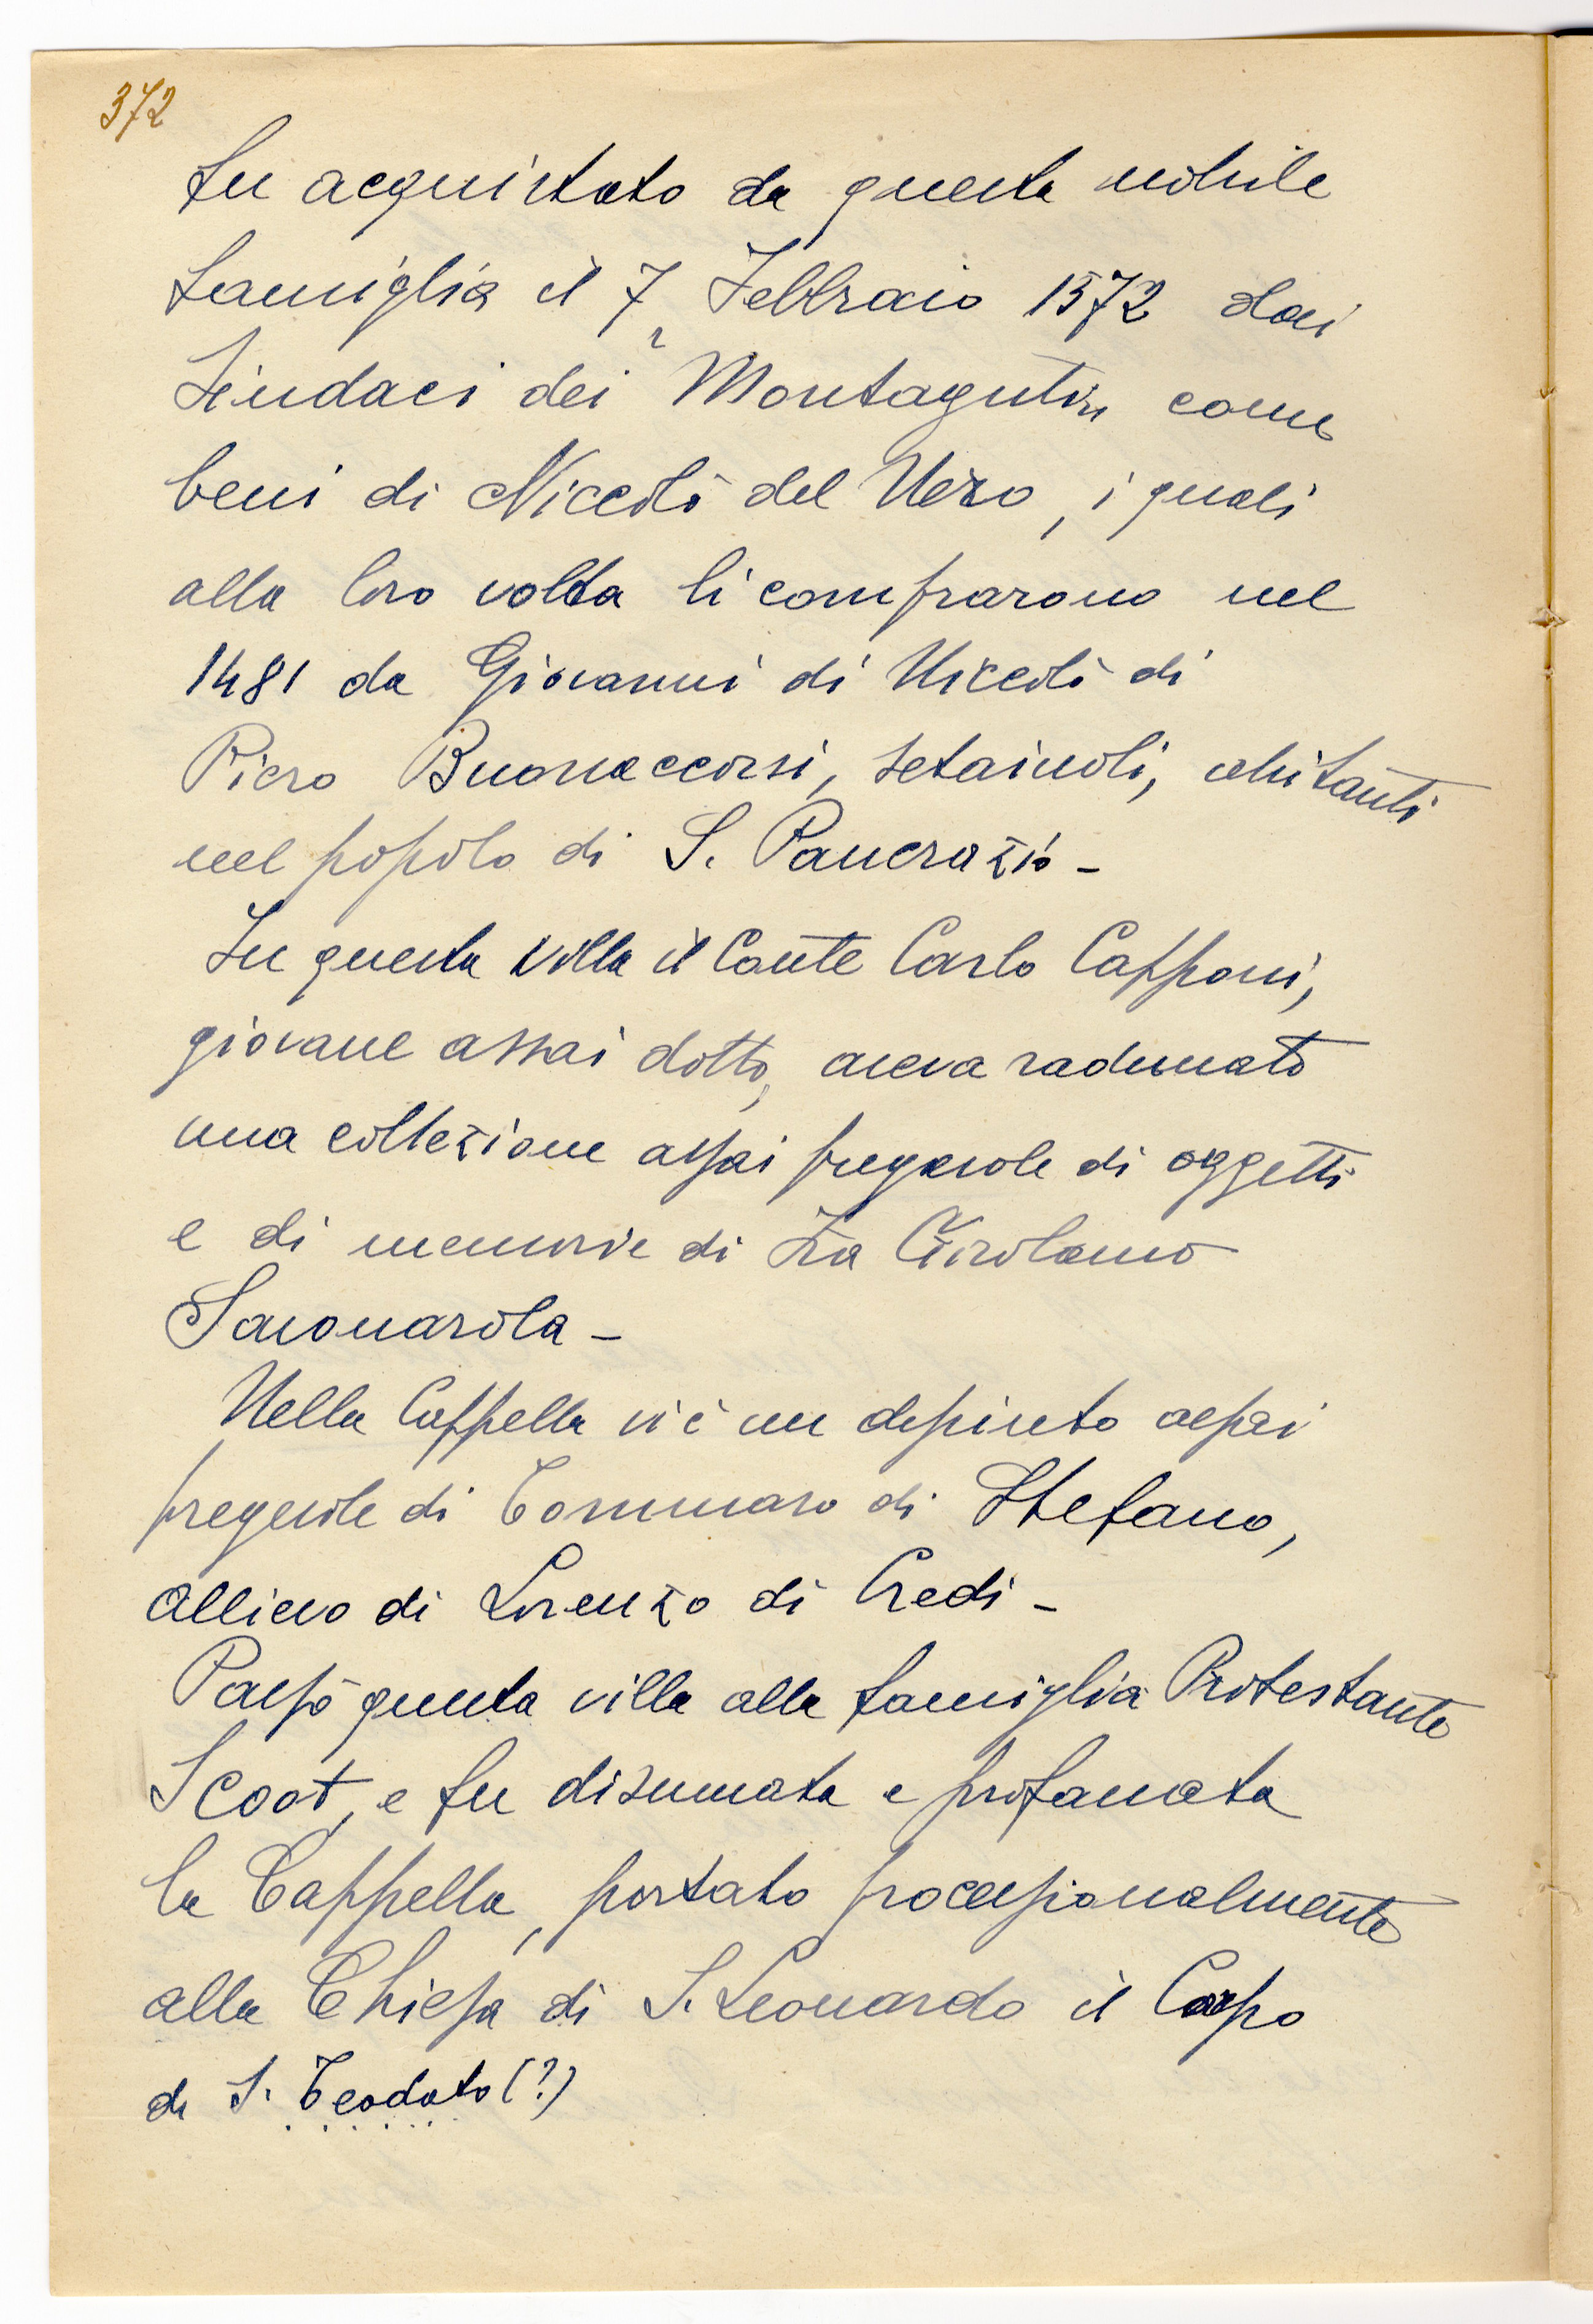 372
fu acquistato da questa nobile
famiglia il 7 Febbraio 1572 dai
Sindaci dei Montaguti, come
beni di Niccolò del Nero, i quali
alla loro volta li comprarono nel
1481 da Giovanni di Niccolò di
Piero Buonaccorsi, setaiuoli, abitanti
nel popolo di S. Pancrazio -
In questa villa il Conte Carlo Capponi,
giovane assai dotto, aveva radunato
una collezione assai pregevole di oggetti
e di memorie di Fra Girolamo
Savonarola -
Nella Cappella vi è un dipinto assai
pregevole di Tommaso di Stefano,
allievo di Lorenzo di Credi -
Passò questa villa alla famiglia Protestante
Scoot, e fu disumata e profanata
la Cappella, portato processionalmente
alla Chiesa di S. Leonardo il Corpo
di S. Teodato (?)